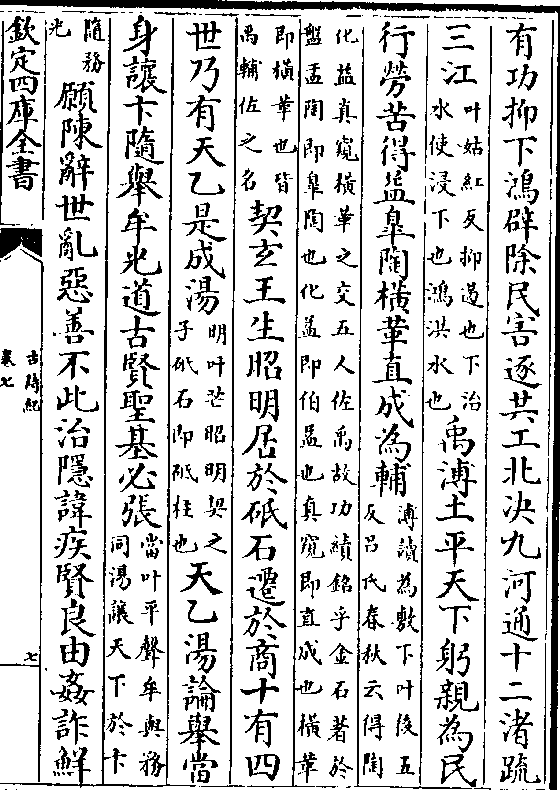 有功抑下鴻辟除民害逐共工北决九河通十二渚疏
三江叶姑紅反抑遏也下治
水使浸下也鴻洪水也禹溥土平天下躬親為民
行勞苦得益臯陶橫革直成為輔溥讀為敷下叶後五
反吕氏春秋云得陶
化益真窺橫革之交五人佐禹故功績銘乎金石著於
盤盂陶即臯陶也化益即伯益也真窺即直成也橫革
即橫革也皆
禹輔佐之名契玄王生昭明居於砥石遷於商十有四
世乃有天乙是成湯明叶茫昭明契之
子砥石即砥柱也天乙湯論舉當
身讓卞隨舉牟光道古賢聖基必張當叶平聲牟與務
同湯讓天下於卞
隨務
光願陳辭世亂惡善不此治隱諱疾賢良由姦詐鮮
欽定四庫全書
古詩紀
卷七
七